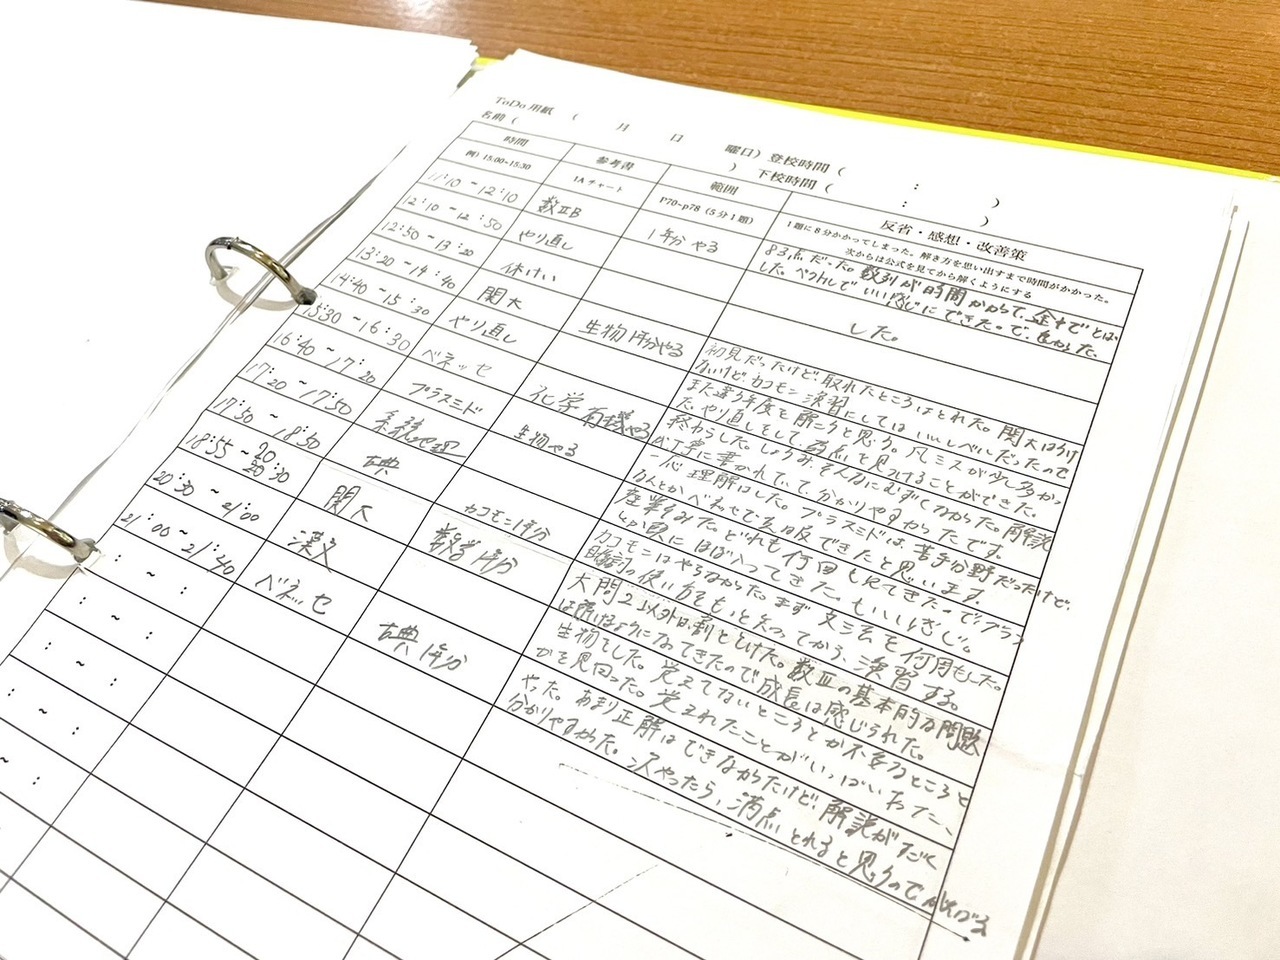 ToDo 用紙 ( 月 日 曜日) 登校時間 ( : )
名前 ( ) 下校時間 ( : )
時間 参考書 範囲 反省・感想・改善策
例) 15:00~15:30 1Aチャート P70~p78 (5分1題) 1題に8分かかってしまった。解き方を思い出すまで時間がかかった。
次からは公式を見てから解くようにする
11:10 ~ 12:10 数ⅡB 1年分やる 83点だった。数列が時間かかって、全部とは
した。ベクトルでいい感じにできたので、良かった、
12:10 ~ 12:50 やり直し した。
12:50 ~ 13:20 休けい
13:20 ~ 14:40 関大 生物1年分やる 初見だったけど取れたところはとれた。関大はうけ
ないけどカコモン演習にしてはいいレベルだったので
また違う年度を解こうと思う。凡ミスが少し多かっ
14:40 ~ 15:30 やり直し た。やり直しをして弱点を見つけることができた。
15:30 ~ 16:30 ベネッセ 化学有機やる 終わらした。しょうみ、そんなにむずくなかった。解説
も丁寧に書かれていて、分かりやすかったです。
16:40 ~ 17:20 プラスミド 生物やる 一応理解はした。プラスミドは、苦手分野だったけど、
なんとかベネッセで克服できたと思います。
17:20 ~ 17:50 系統地理 産業をみた。どれも何回も見てきたので、プラン
とか頭にほぼ入ってきた。もいいかんじ。
17:50 ~ 18:50 古典 カコモン1年分 カコモンはやらなかった。まず文法を何周もした。
助動詞の使い方をもっと知ってから、演習する。
18:55 ~ 20:30 関大 数学1年分 大問2以外は割ととけた。数Ⅲの基本的な問題
は解けるようになってきたので成長は感じられた。
20:30 ~ 21:00 漢文 生物をした。覚えてないところとか不安なところと
かを見回った。覚えれたことがいっぱいあった、
21:00 ~ 21:40 ベネッセ 古典1年分 やった。あまり正解はできなかたけど、解説がすごく
分かりやすかた。次やったら、満点とれると思うのでがんばる。
: ~ :
: ~ :
: ~ :
: ~ :
~ :